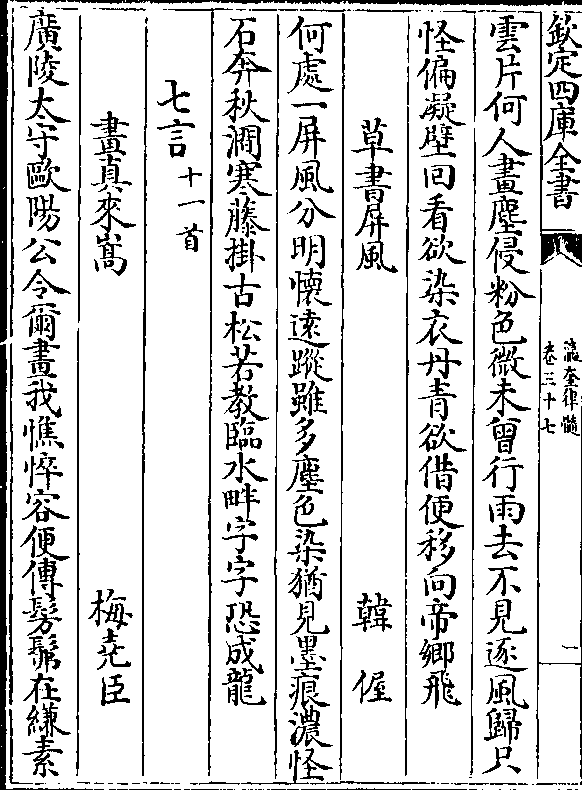 欽定四庫全書
瀛奎律髓
卷三十七
二
雲片何人畫塵侵粉色微未曾行雨去不見逐風歸只
怪偏凝壁回看欲染衣丹青欲借便移向帝鄉飛
草書屏風 韓偓
何處一屏風分明懷遠蹤雖多塵色染猶見墨痕濃怪
石奔秋澗寒藤掛古松若教臨水畔字字恐成龍
七言十一首
畫真來嵩 梅堯臣
廣陵太守歐陽公令爾畫我憔悴容便傳髣髴在縑素